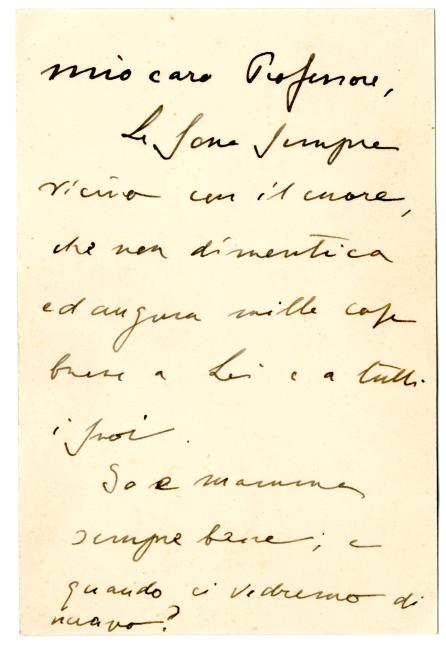 mio caro Professore,
Le sono sempre
vicino con il cuore,
che non dimentica
ed augura mille cose
buone a Lei e a tutti
i suoi.
Io e mamma
sempre bene; e
quando ci vedremo di
nuovo?